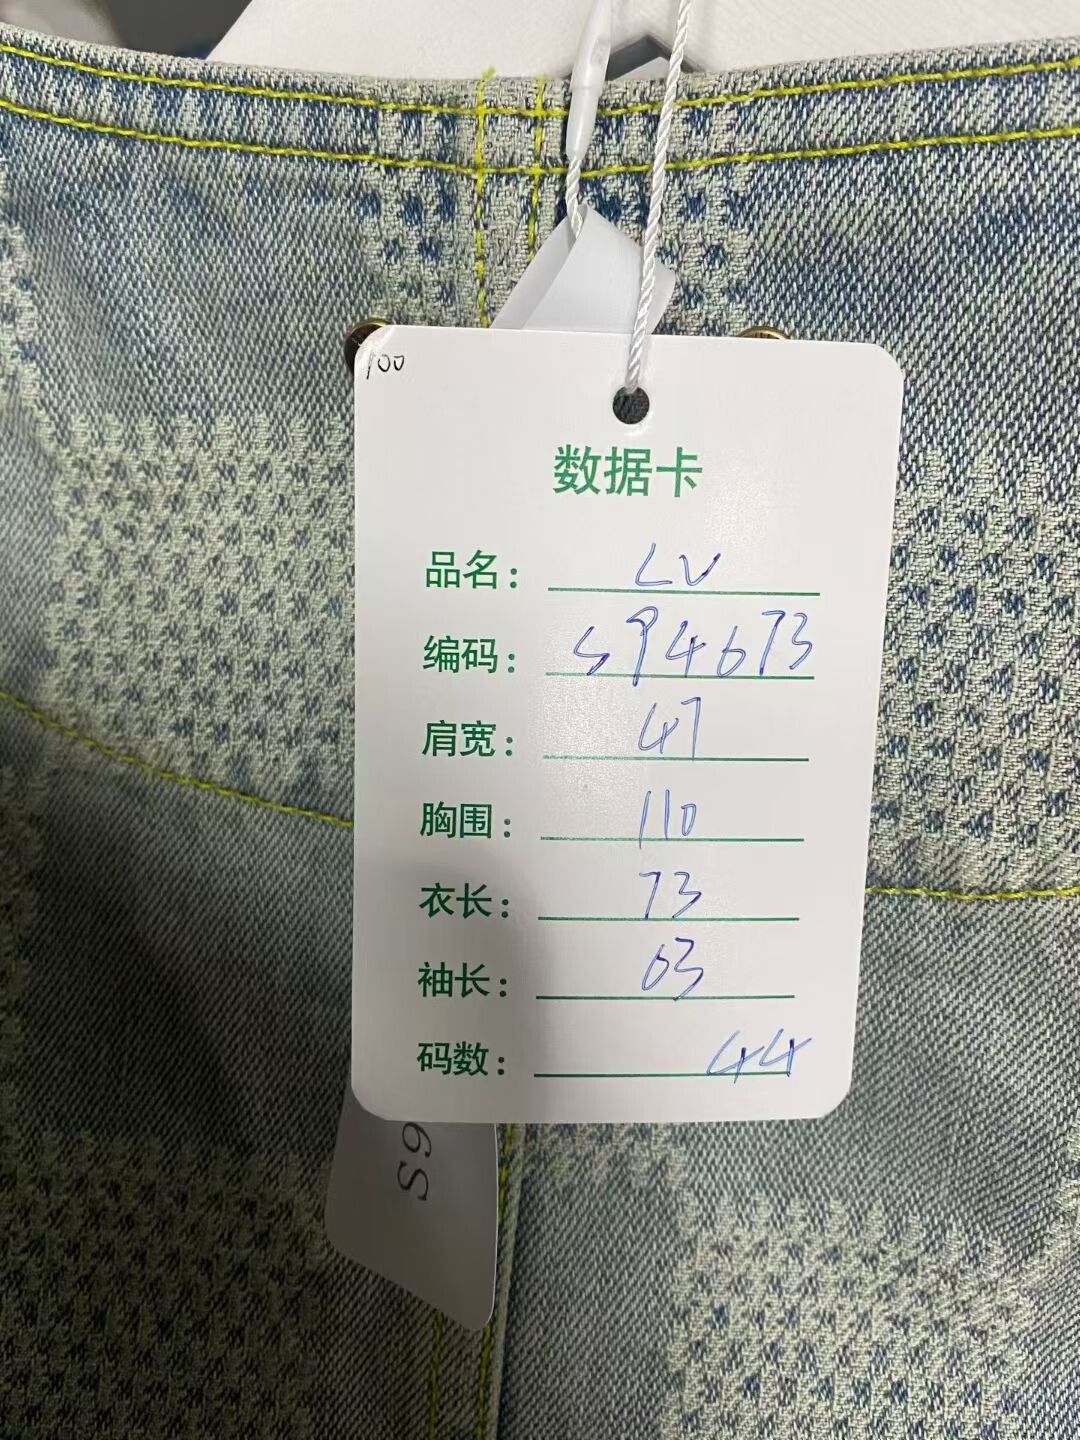 100
数据卡
品名: LV
编码: S94673
肩宽: 47
胸围: 110
衣长: 73
袖长: 63
码数: 44
S9